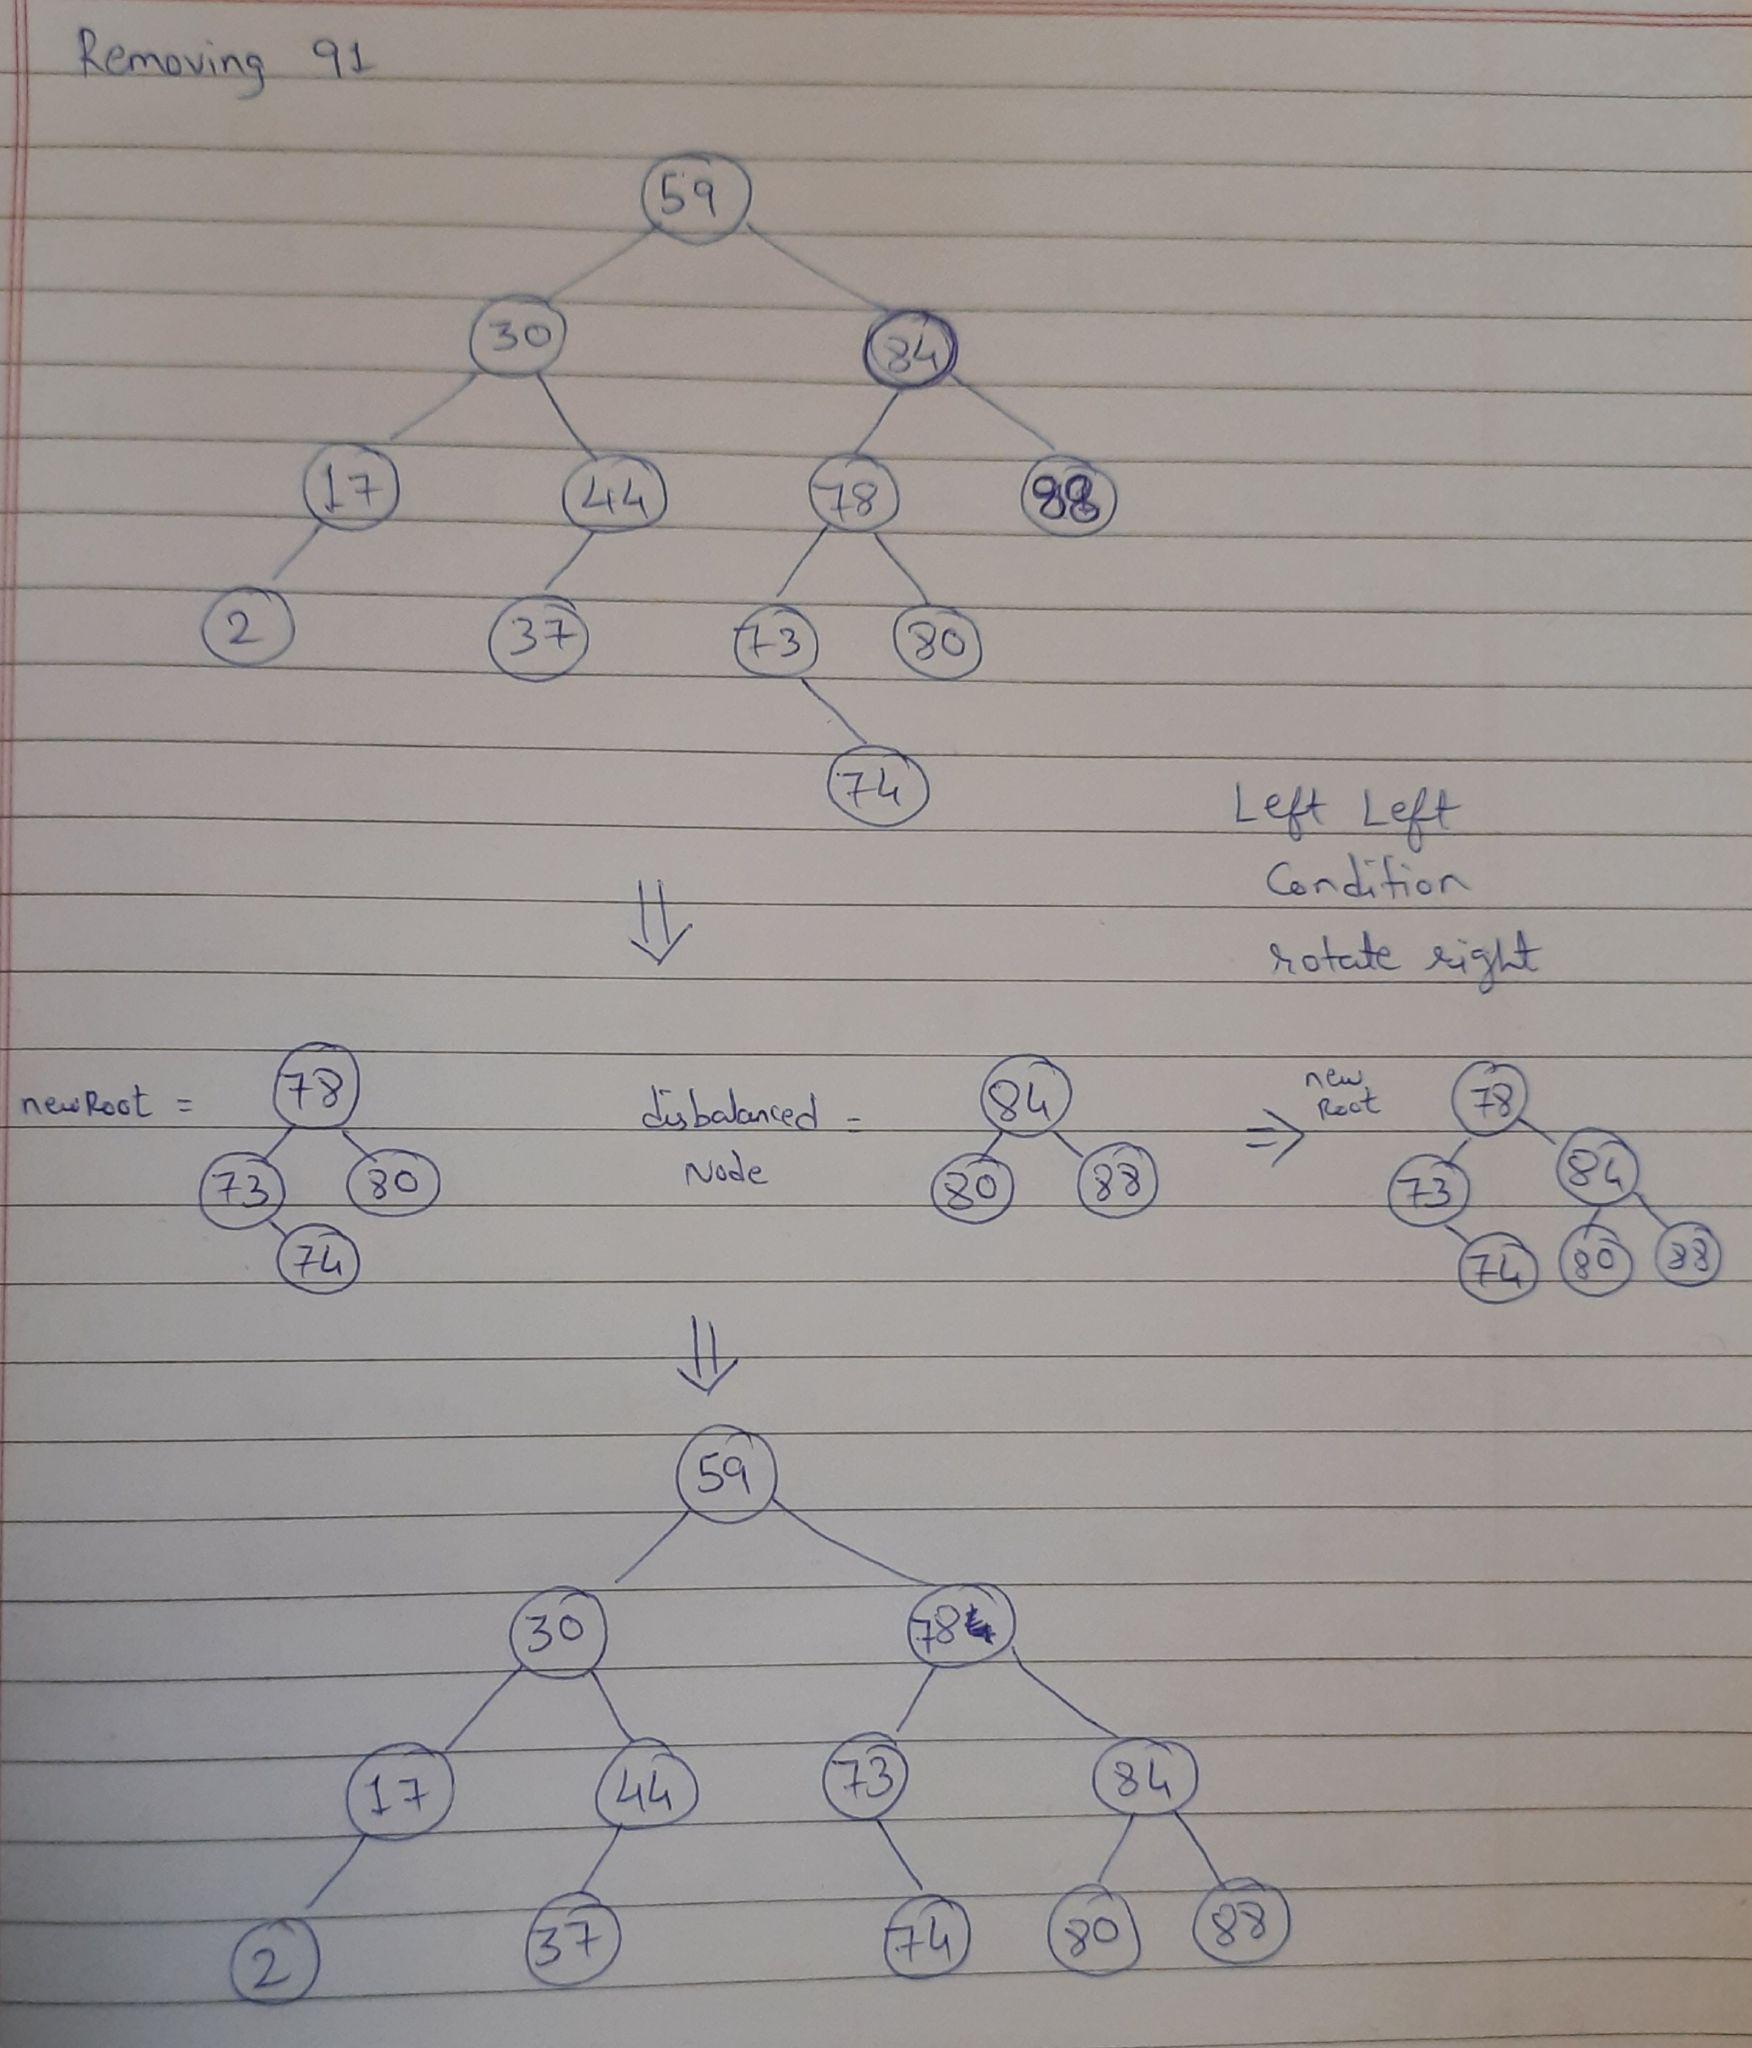 Removing 91
59
30 84
17 44 78 88
2 37 73 80
74
Left Left
Condition
rotate right
newRoot = 78
73 80
74
disbalanced = 84
Node
80 88
⇒ new
Root
78
73 84
74 80 88
59
30 78
17 44 73 84
2 37 74 80 88